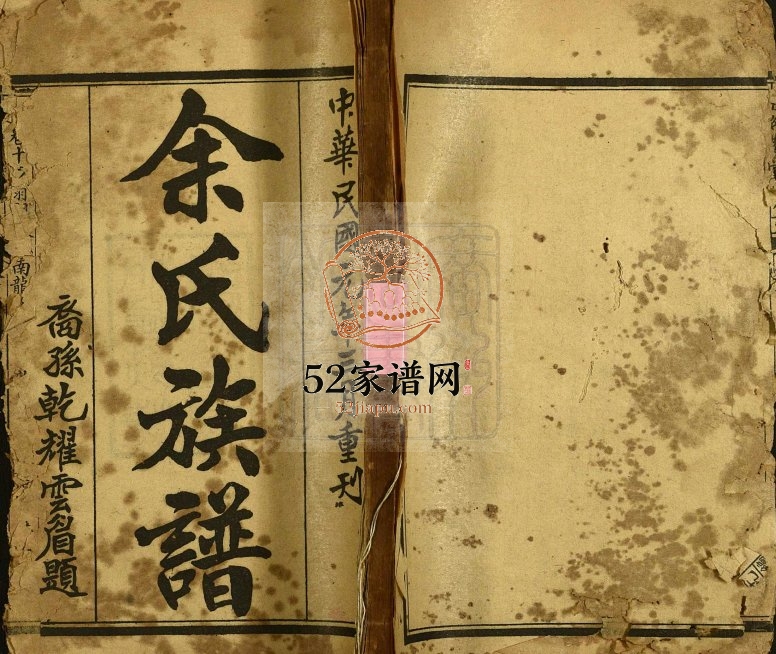 中華民國元年十二月重刊
余氏族譜
裔孫乾耀雲眉題
南龍
52家谱网
52jiapu.com